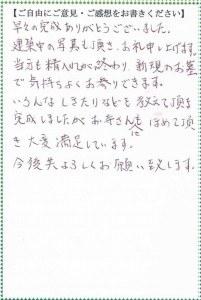 【ご自由にご意見・ご感想をお書きください】
早々の完成ありがとうございました。
建築中の写真も頂き、お礼申し上げます。
当方も精入れが終わり、新規のお墓
で気持ちよくお参りできます。
いろんなしきたりなども教えて頂き
完成しましたがお寺さんにもほめて頂
き大変満足しています。
今後共よろしくお願い致します。